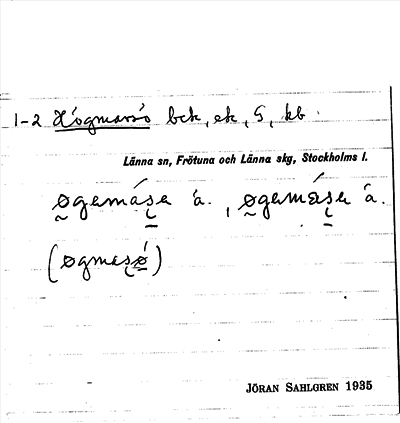 1-2 Högmarsö bek, ek, S, kb
Länna sn, Frötuna och Länna skg, Stockholms l.
øgemása á. , øgemása á.
(øgmasø)
JÖRAN SAHLGREN 1935